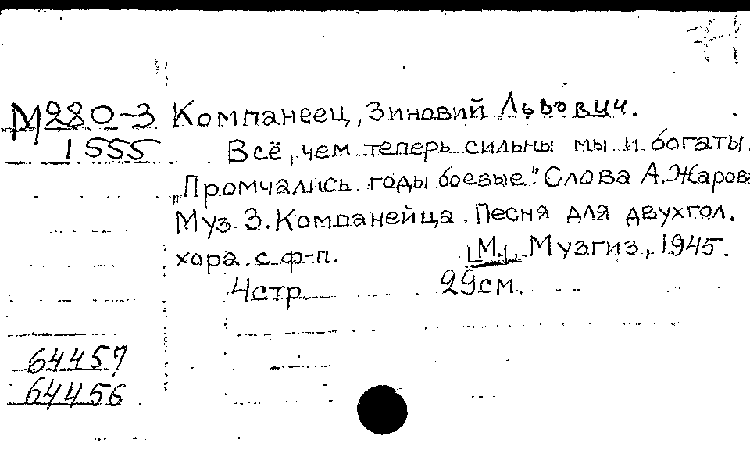 М280-3 Компанеец, Зиновий Львович.
1555 Всё, чем теперь сильны мы и богаты.
„Промчались годы боевые." Слова А. Жарова
Муз. З. Компанейца. Песня для двухгол.
хора с ф-п. [М.], Музгиз, 1945.
4стр 29см.
64457
64456